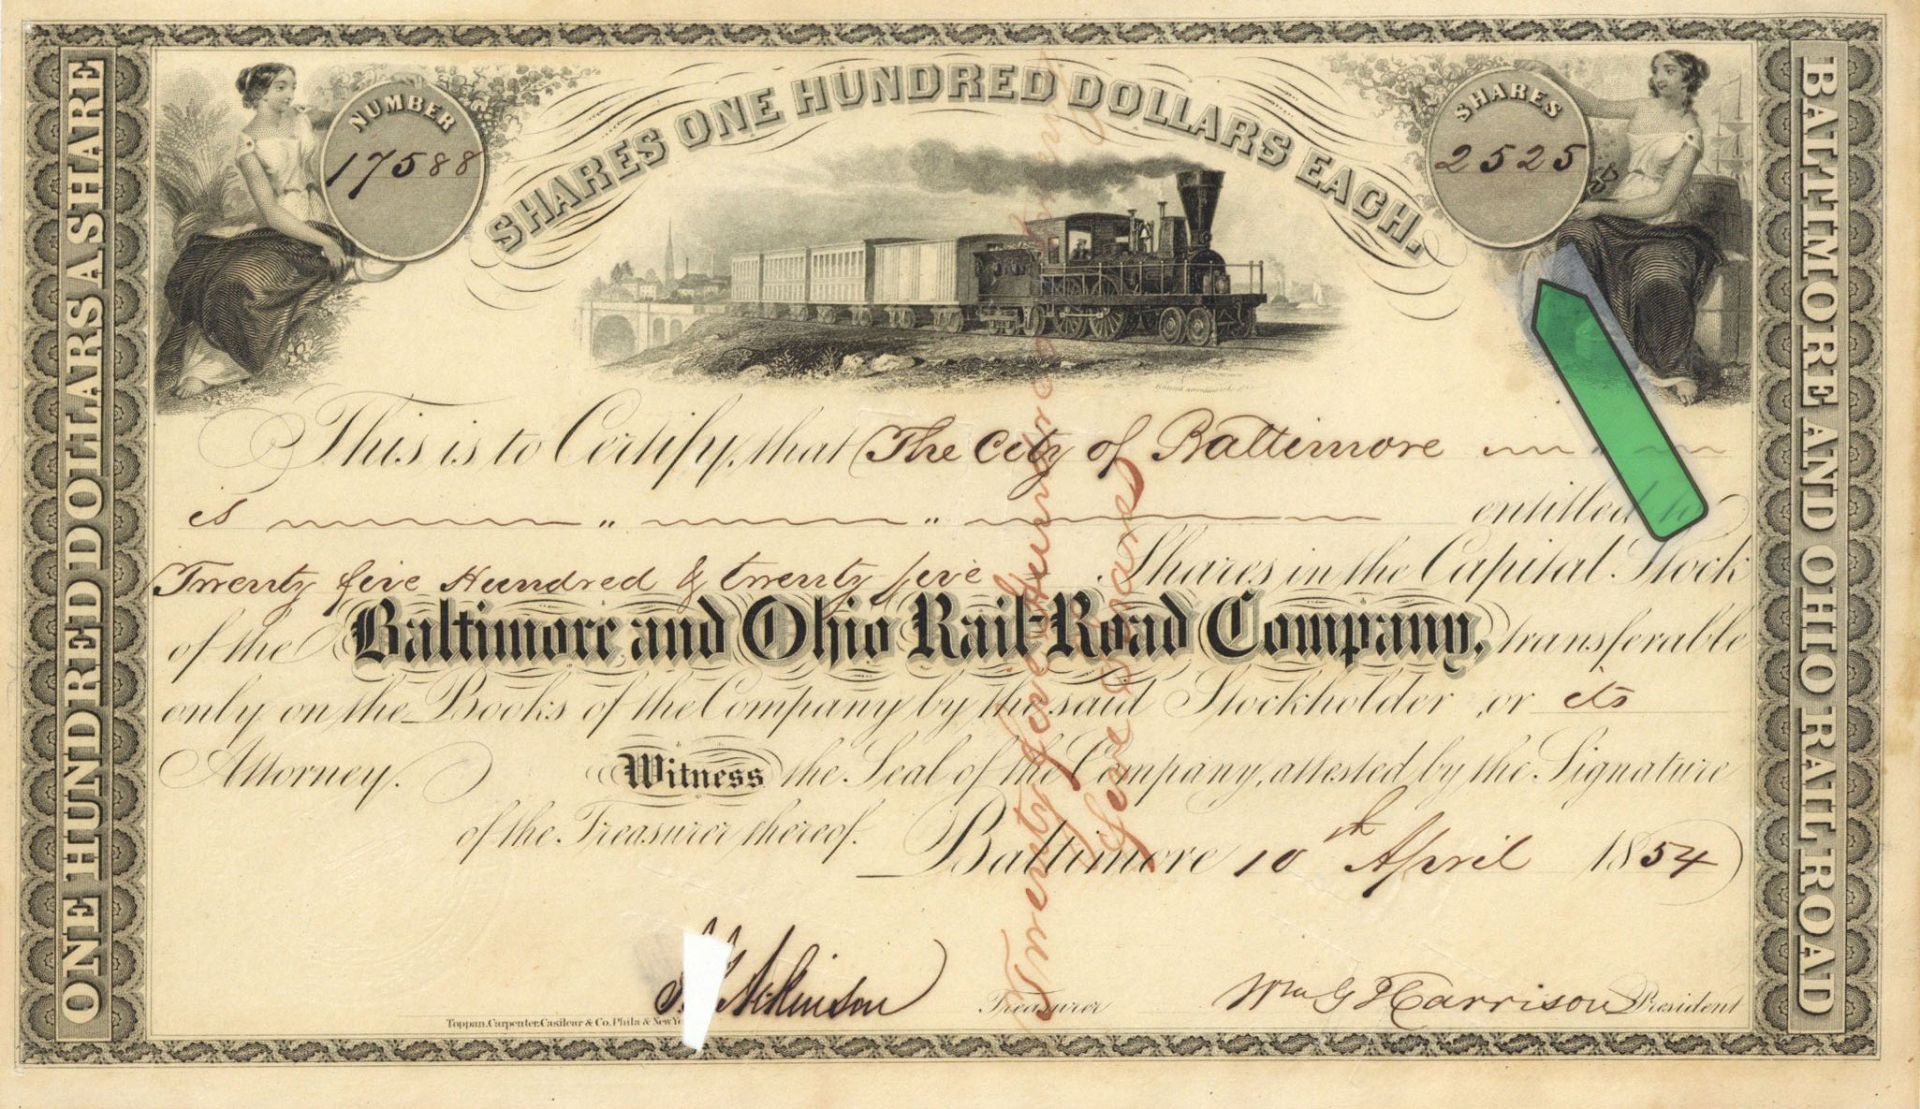 ONE HUNDRED DOLLARS A SHARE
NUMBER
17588
SHARES ONE HUNDRED DOLLARS EACH.
SHARES
2525
BALTIMORE AND OHIO RAIL ROAD
This is to Certify, that The City of Baltimore
is " " entitled to
Twenty five Hundred & twenty five Shares in the Capital Stock
of the Baltimore and Ohio Rail-Road Company, transferable
only on the Books of the Company by the said Stockholder or its
Attorney. Witness the Seal of the Company, attested by the Signature
of the Treasurer thereof.
Baltimore 10th April 1854
Atkinson Treasurer
Wm G Harrison President
Toppan, Carpenter, Casilear & Co. Phila & New Yo
Twenty five Hundred & Twenty
five Shares